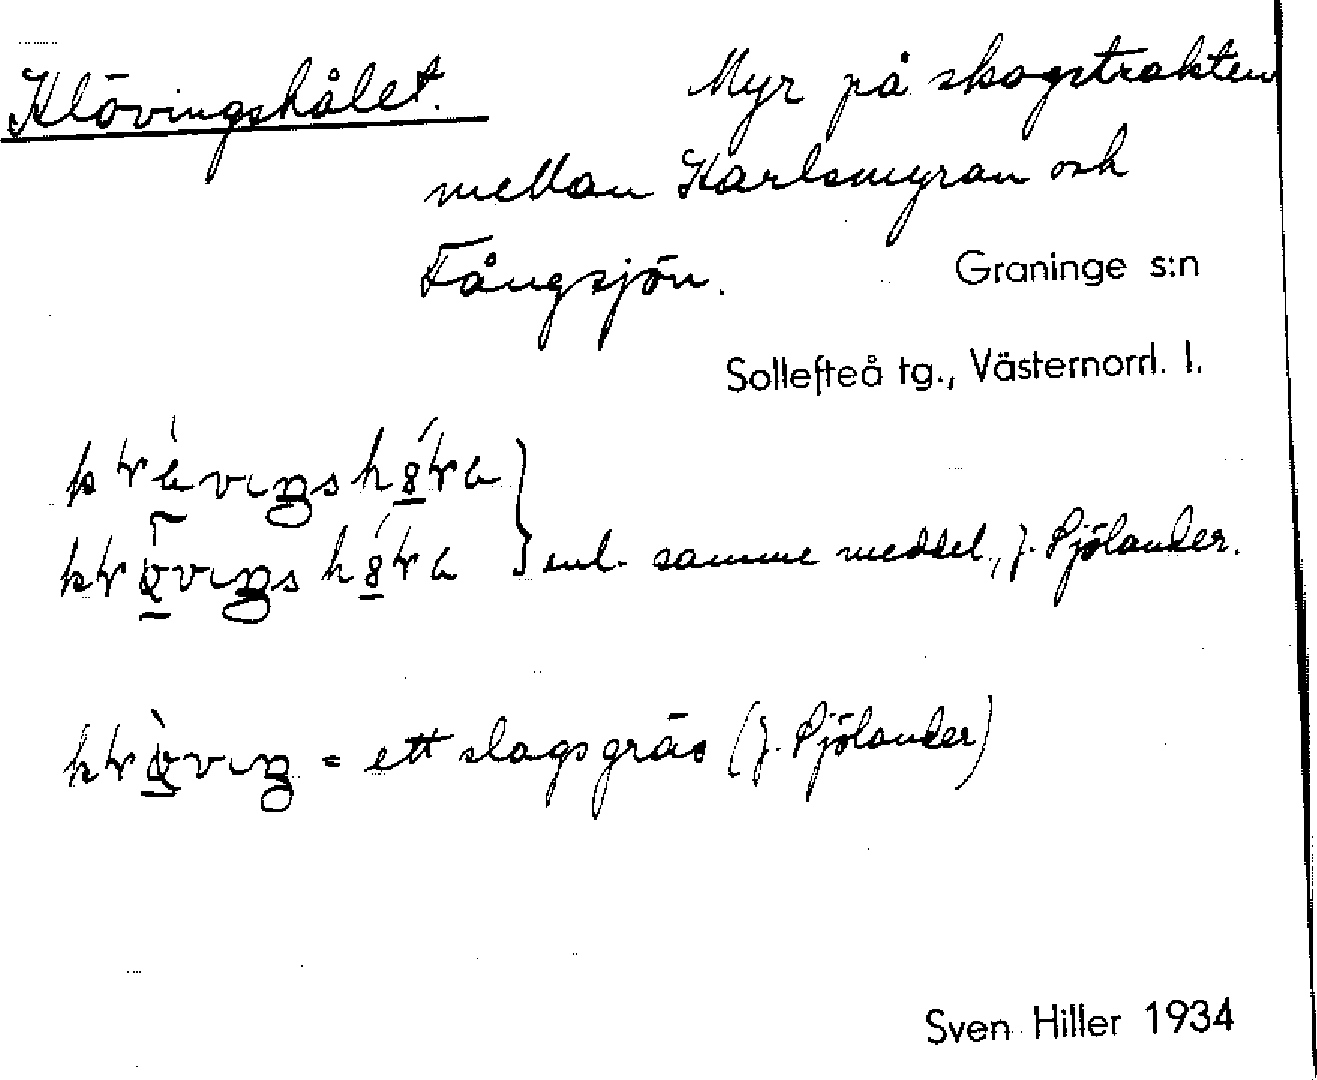 Klövingshålet.
Myr på skogstrakten
mellan Karlsmyran och
Fångsjön.
Graninge s:n
Sollefteå tg., Västernorrl. l.
enl. samme meddel., J. Sjölander.
= ett slags gräs (J. Sjölander)
Sven Hiller 1934